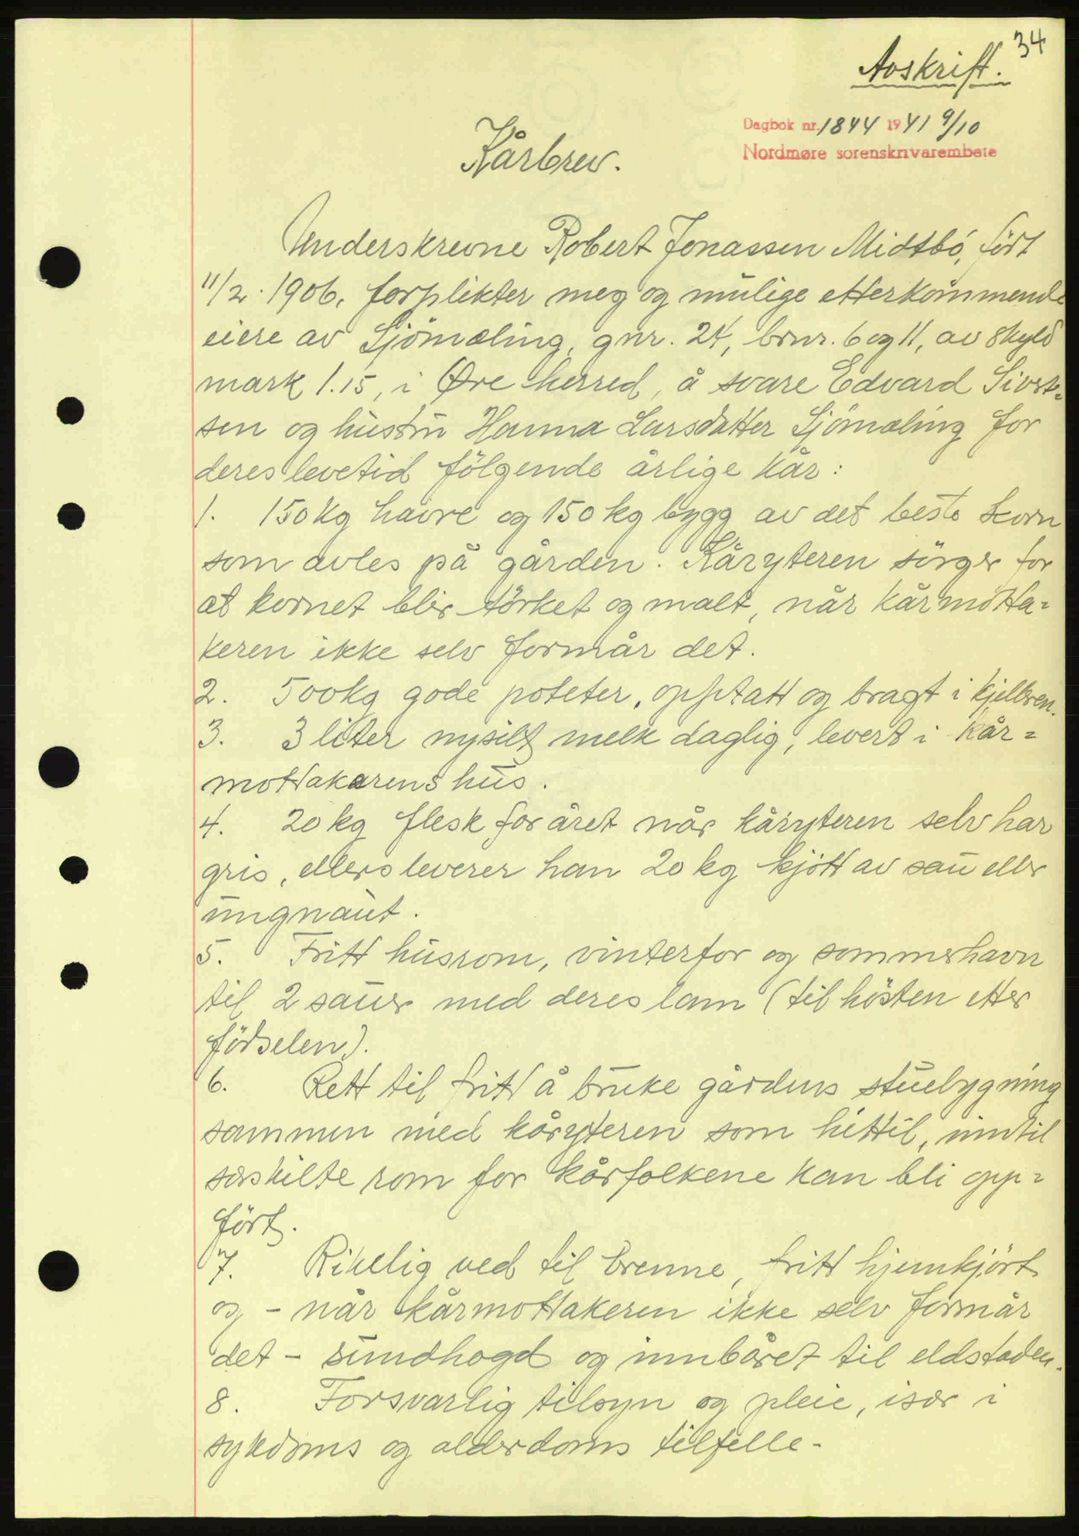 34
Avskrift.
Dagbok nr. 1844 1941 9/10
Nordmøre sorenskrivarembete
Kårbrev.
Underskrevne Robert Jonassen Midtbö, född
11/2. 1906, forplikter meg og mulige etterkommende
eiere av Sjömæling, gnr. 24, brnr. 6 og 11, av skyld
mark 1.15, i Øre herred, å svare Edvard Sivert=
sen og hustru Hanna Larsdatter Sjömæling for
deres levetid fölgende årlige kår:
1. 150 kg havre og 150 kg bygg av det beste korn
som avles på gården. Kåryteren sörger for
at kornet blir törket og malt, når kårmotta=
keren ikke selv formår det.
2. 500 kg gode poteter, opptatt og bragt i kjelleren.
3. 3 liter nysilt melk daglig, levert i kår=
mottakarens hus.
4. 20 kg flesk for året når kåryteren selv har
gris, ellers leverer han 20 kg kjött av sau eller
ungnaut.
5. Fritt husrom, vinterfor og sommerhavn
til 2 sauer med deres lam (til hösten etter
födselen).
6. Rett til fritt å bruke gårdens stuebygning
sammen med kåryteren som hittil, inntil
særskilte rom for kårfolkene kan bli opp=
fört.
7. Rikelig ved til brenne, fritt hjemkjört
og - når kårmottakeren ikke selv formår
det - sundhogd og innbåret til eldstaden.
8. Forsvarlig tilsyn og pleie, især i
sykdoms og alderdoms tilfelle.